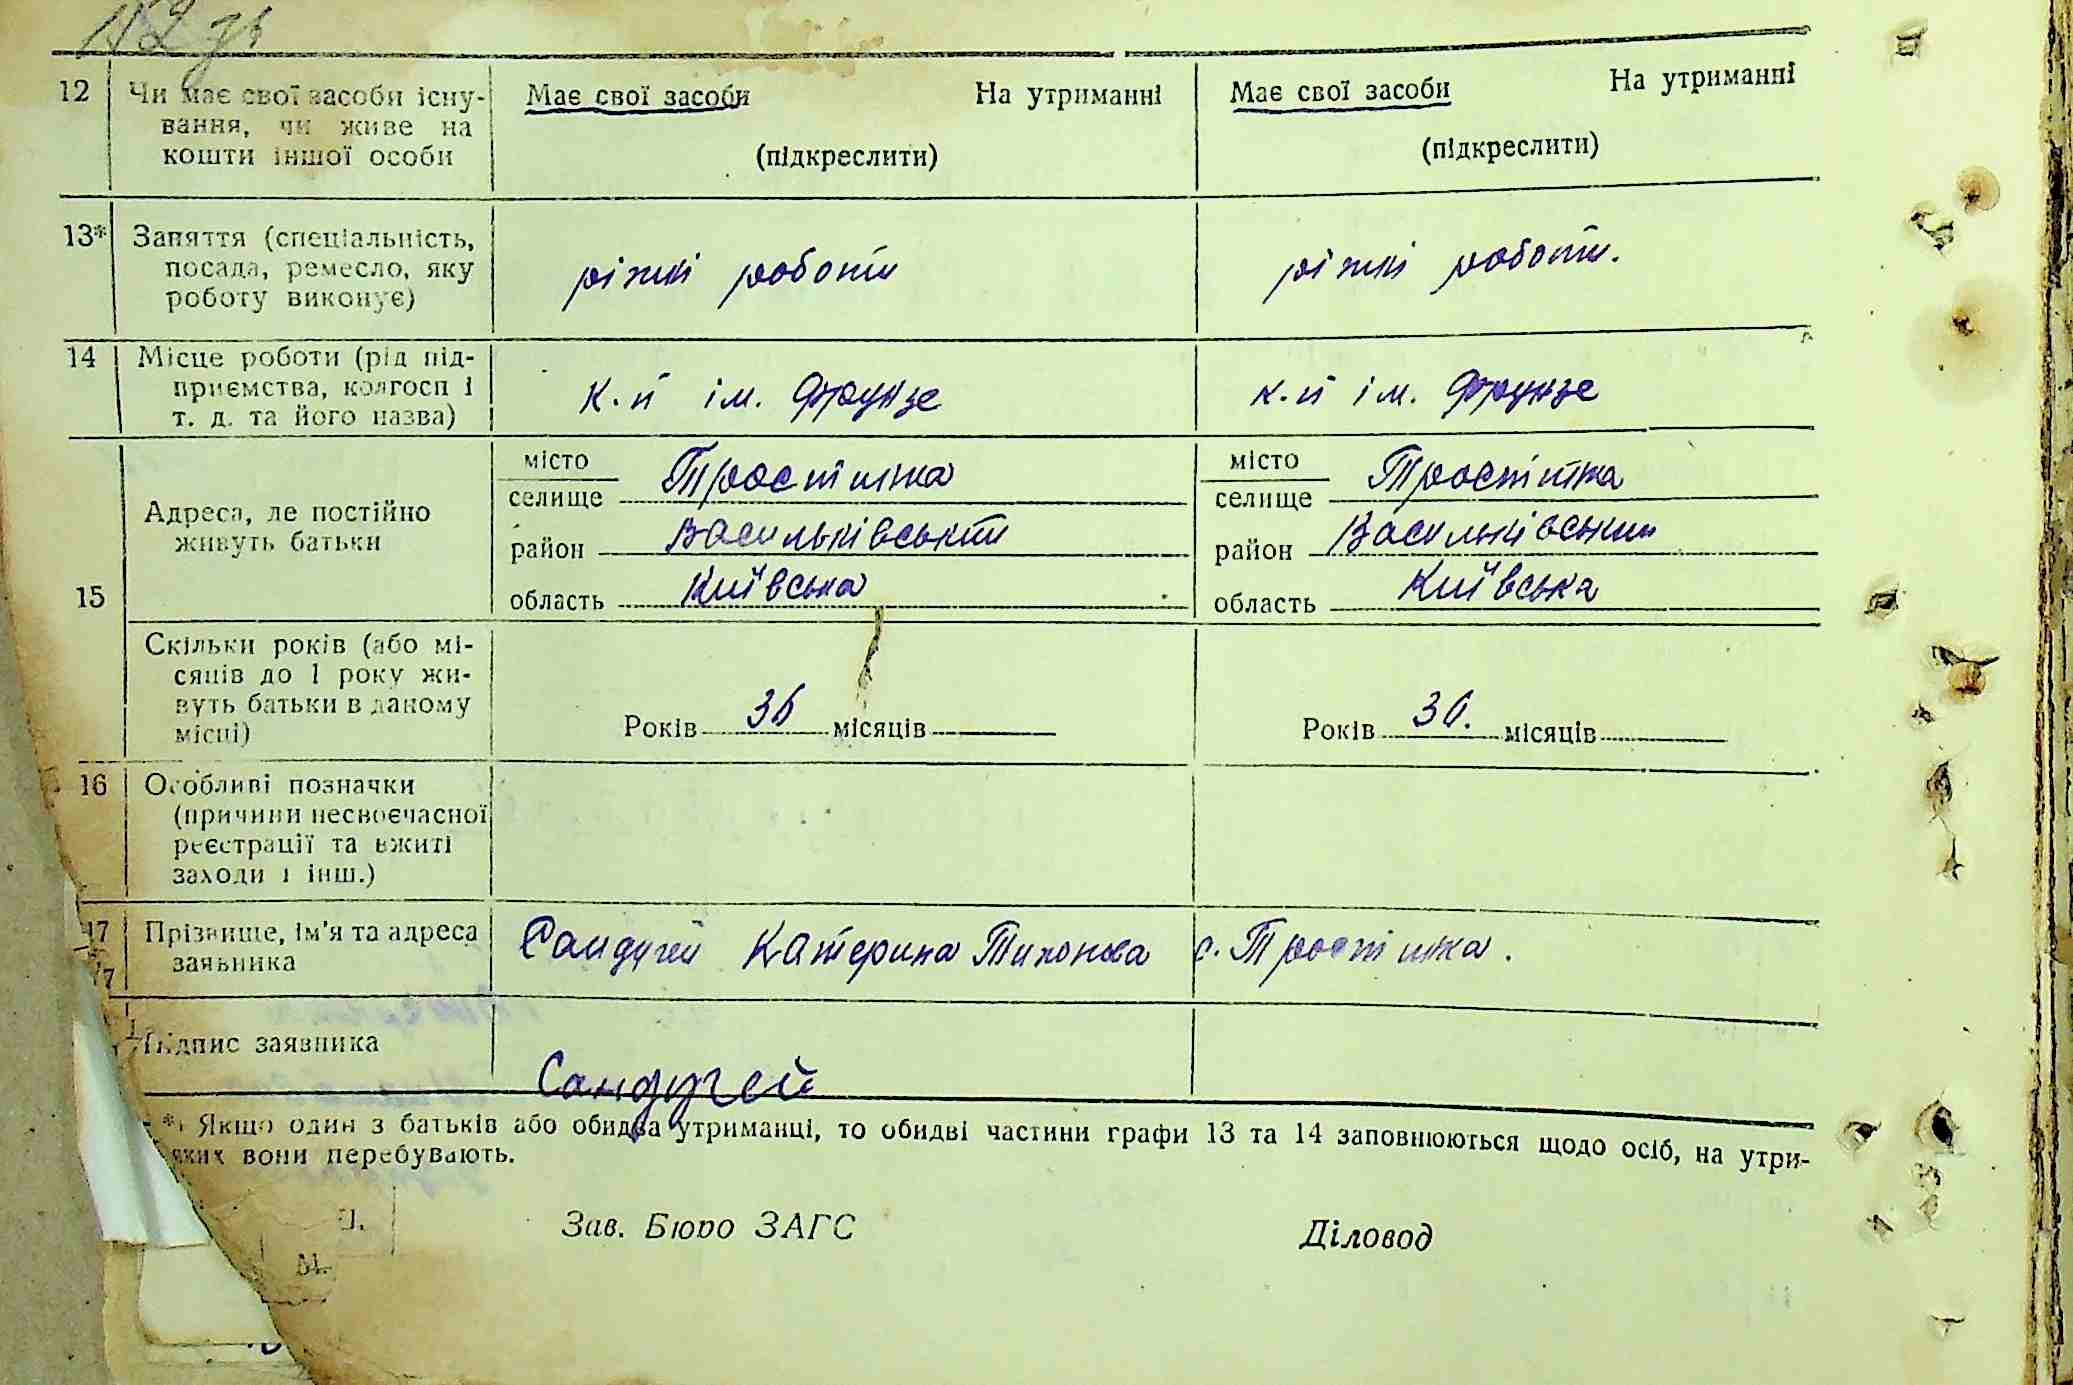 12 Чи має свої засоби існу- Має свої засоби На утриманні Має свої засоби На утриманні
вання, чи живе на
кошти іншої особи (підкреслити) (підкреслити)
13* Заняття (спеціальність,
посада, ремесло, яку різні роботи різні роботи.
роботу виконує)
14 Місце роботи (рід під-
приємства, колгосп і к.п ім. Фрунзе к.п ім. Фрунзе
т. д. та його назва)
місто Тростинка місто Тростинка
селище селище
Адреса, де постійно
живуть батьки район Васильківський район Васильківський
15 область Київська область Київська
Скільки років (або мі-
сяців до 1 року жи-
вуть батьки в даному Років 36 місяців Років 36. місяців
місці)
16 Особливі позначки
(причини несвоєчасної
реєстрації та вжиті
заходи і інш.)
17 Прізвище, ім'я та адреса Сандугей Катерина Тихонова с. Тростинка.
заявника
Підпис заявника
Сандугей
*) Якщо один з батьків або обидва утриманці, то обидві частини графи 13 та 14 заповнюються щодо осіб, на утри-
яких вони перебувають.
Зав. Бюро ЗАГС Діловод